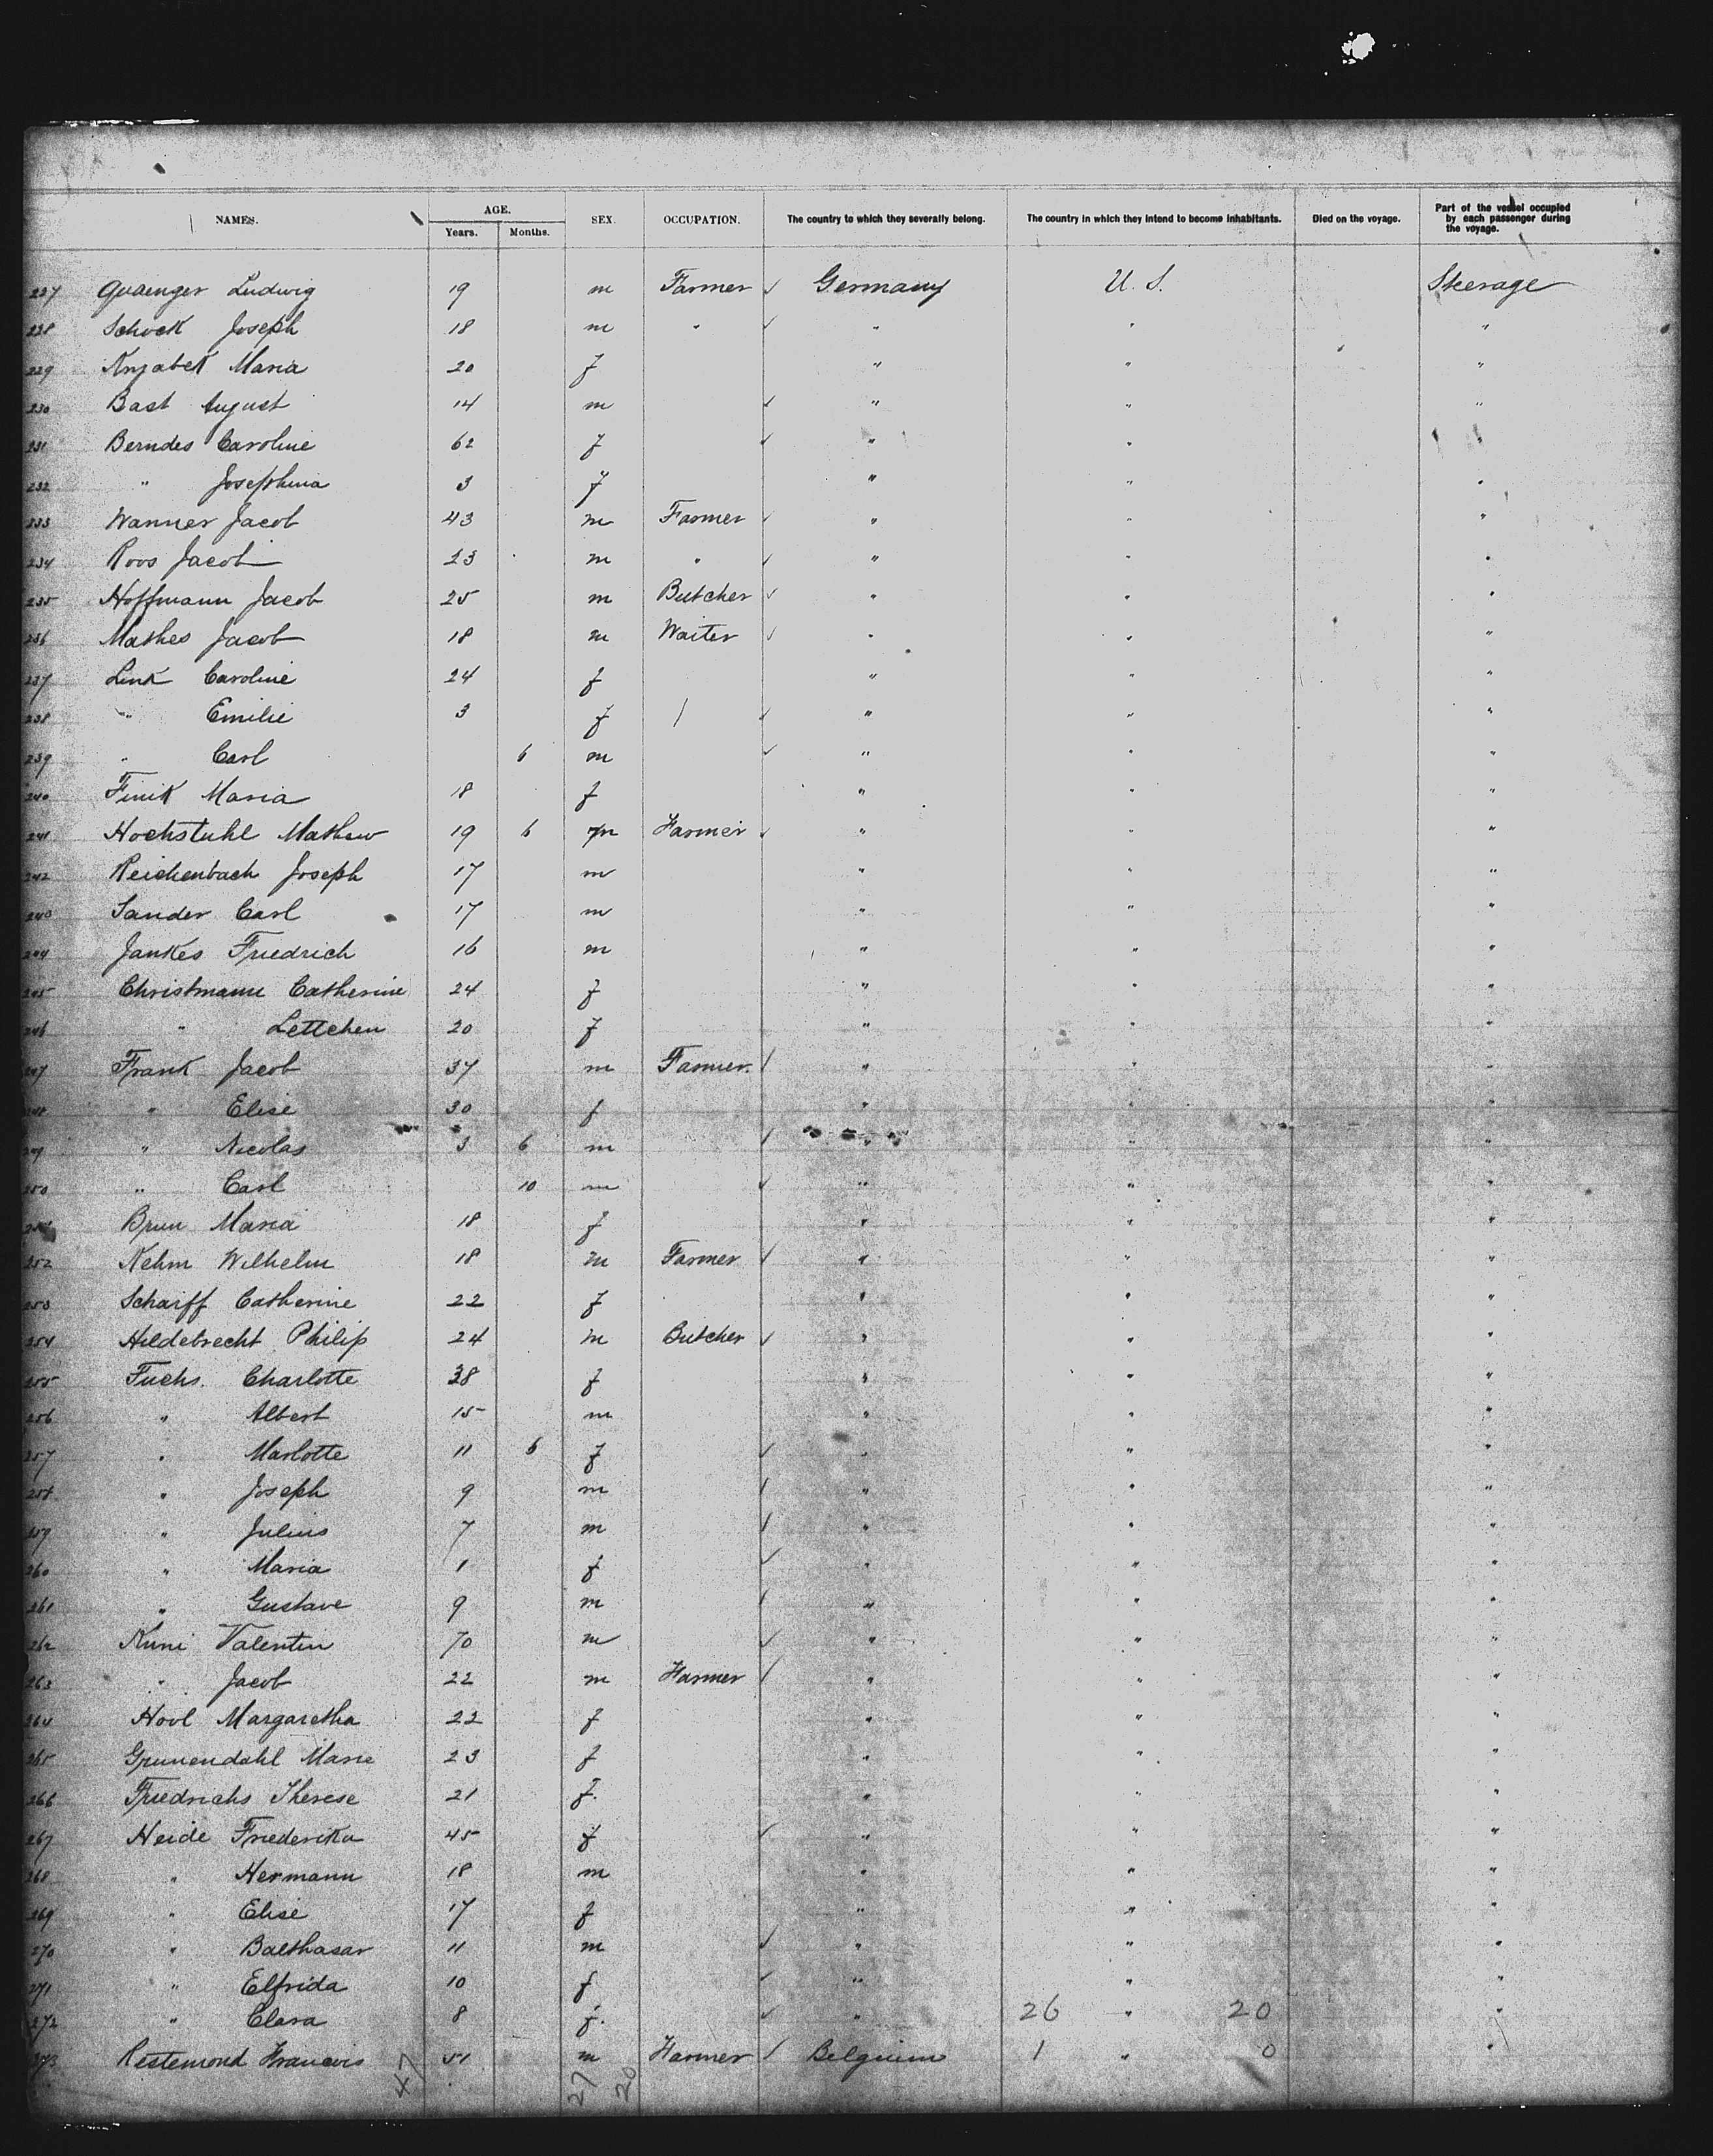 NAMES. AGE. SEX. OCCUPATION. The country to which they severally belong. The country in which they intend to become inhabitants. Died on the voyage. Part of the vessel occupied by each passenger during the voyage.
Years. Months.
227 Ludwig 19 m Farmer ✓ Germany U. S. Steerage
228 Schock Joseph 18 m " ✓ " " "
229 Maria 20 f " " "
230 Bast August 14 m ✓ " " "
231 Berndes Caroline 62 f ✓ " " "
232 " Josephina 3 f " " "
233 Wanner Jacob 43 m Farmer ✓ " " "
234 Roos Jacob 23 m " ✓ " " "
235 Hoffmann Jacob 25 m Butcher ✓ " " "
236 Mathes Jacob 18 m Waiter ✓ " " "
237 Link Caroline 24 f " " "
238 " Emilie 3 f / ✓ " " "
239 " Carl 6 m ✓ " " "
240 Finik Maria 18 f " " "
241 Hochstuhl Mathew 19 6 m Farmer ✓ " " "
242 Reichenbach Joseph 17 m " " "
243 Sander Carl 17 m " " "
244 Jankes Friedrich 16 m " " "
245 Christmann Catherine 24 f " " "
246 " Lettchen 20 f " " "
247 Frank Jacob 37 m Farmer. / " " "
248 " Elise 30 f " " "
249 " Nicolas 3 6 m / " " "
250 " Carl 10 m ✓ " " "
251 Brun Maria 18 f " " "
252 Kehm Wilhelm 18 m Farmer ✓ " " "
253 Scharff Catherine 22 f " " "
254 Hildebrecht Philip 24 m Butcher ✓ " " "
255 Fuchs. Charlotte 38 f " " "
256 " Albert 15 m " " "
257 " Marlotte 11 6 f ✓ " " "
258 " Joseph 9 m / " " "
259 " Julius 7 m / " " "
260 " Maria 1 f ✓ " " "
261 " Gustave 9 m / " " "
262 Kuni Valentin 70 m ✓ " " "
263 " Jacob 22 m Farmer / " " "
264 Hool Margaretha 22 f " " "
265 Grunendahl Marie 23 f " " "
266 Friedrichs Therese 21 f. " " "
267 Heide Friederika 45 f ✓ " " "
268 " Hermann 18 m " " "
269 " Elise 17 f " " "
270 " Balthasar 11 m ✓ " " "
271 " Elfrida 10 f ✓ " " "
272 " Clara 8 f. ✓ " 26 " 20 "
273 Restemond Francois 51 m Farmer / Belgium 1 " 0 "
47 27 20